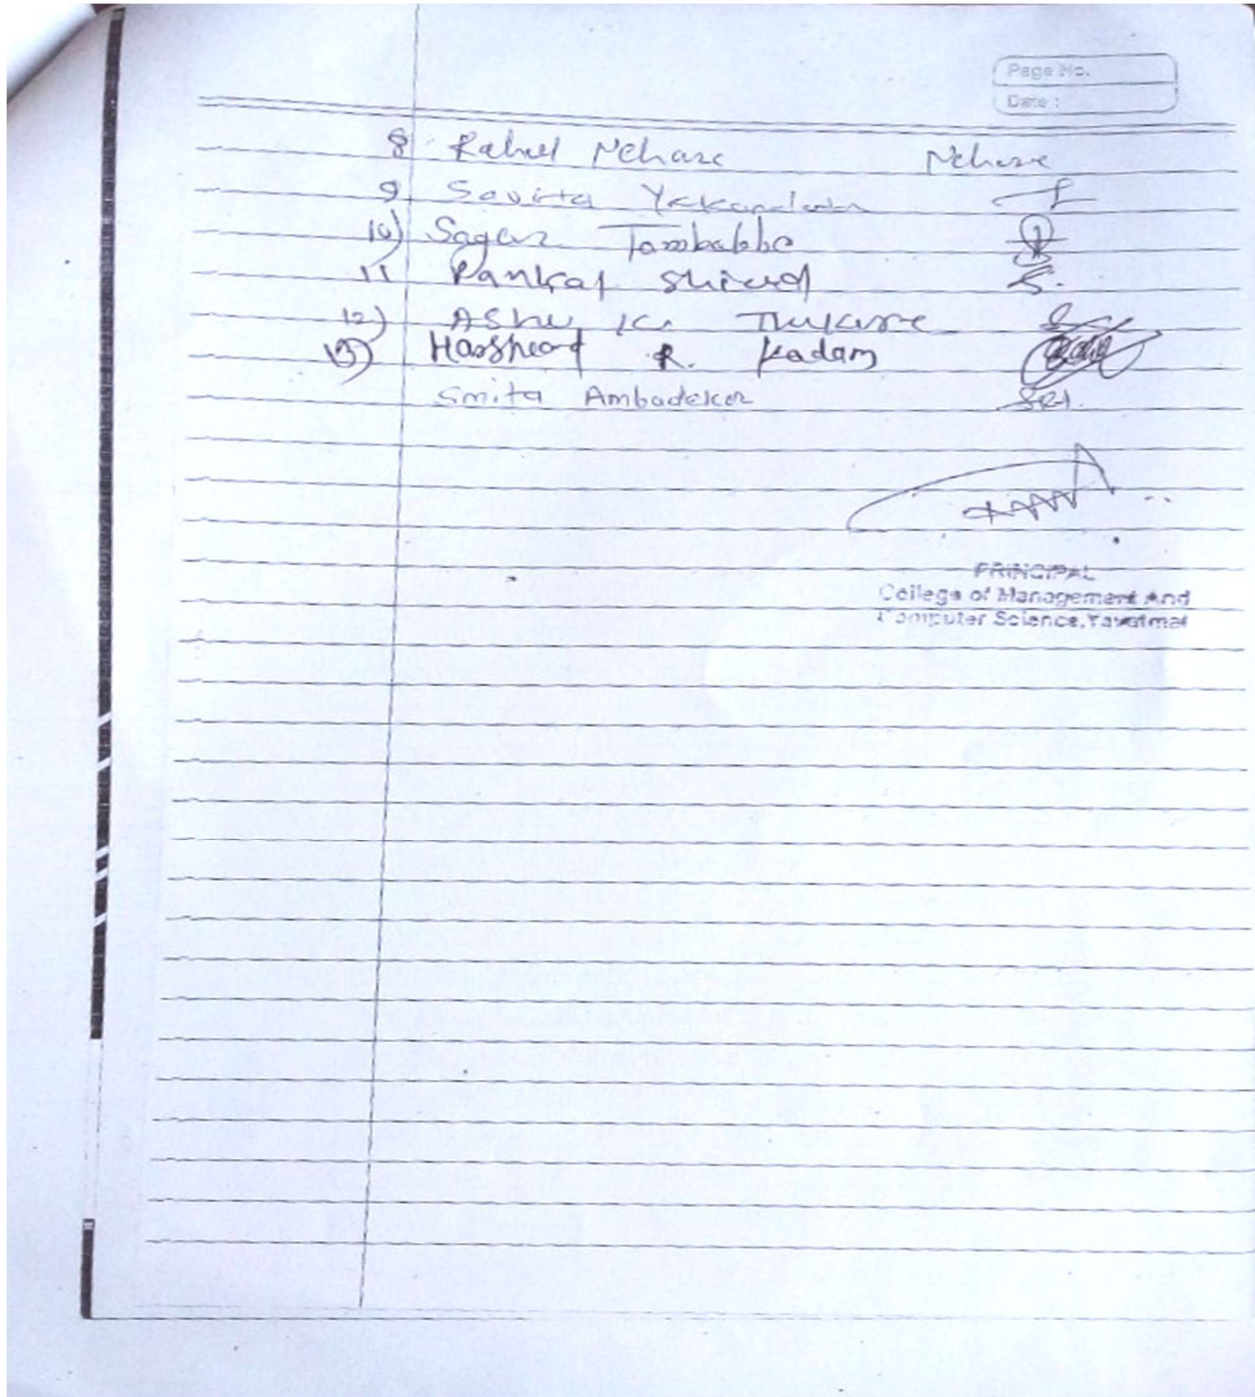 Page No.
Date :
8 Rahul Nehare Nehare
9 Savita
10) Sagar
11 Pankaj Shirud S.
12) Ashu K. Thakare
13) Harshend R. Kadam
Smita Ambadekar
PRINCIPAL
College of Management And
Computer Science, Yavatmal